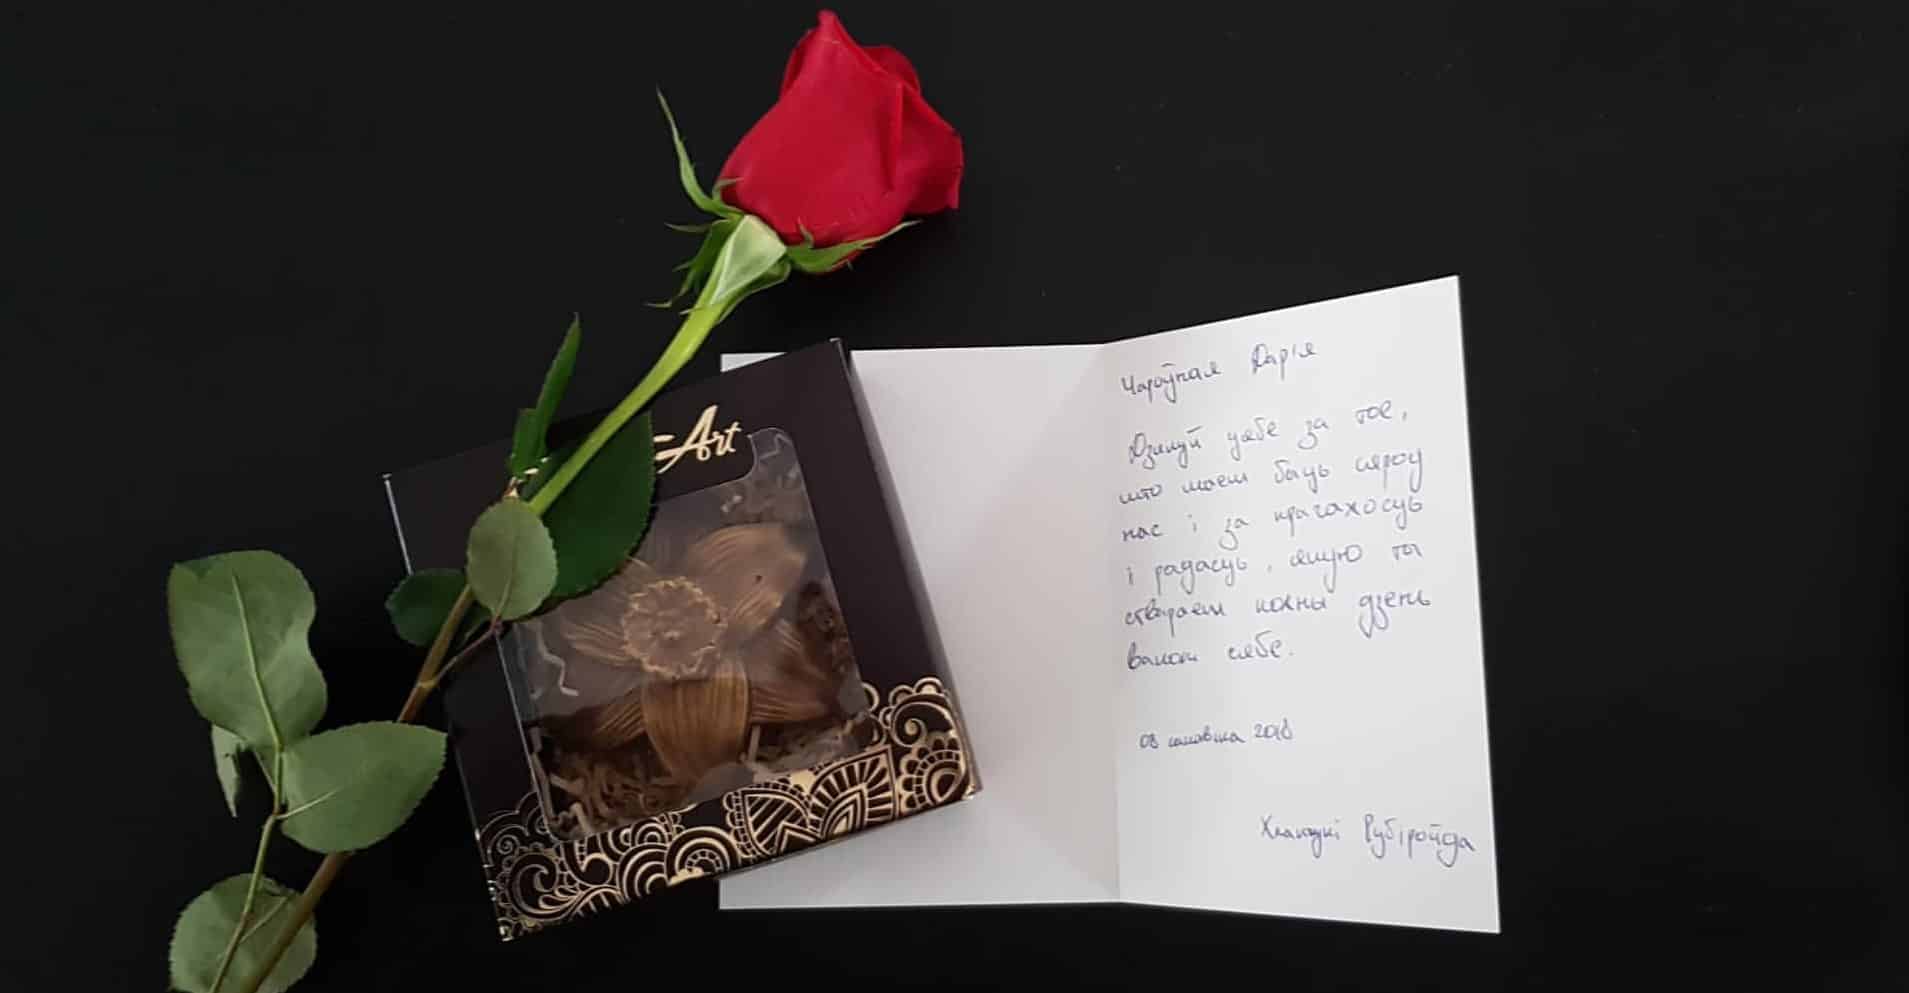 Art
Чароўная Дар'я
Дзякуй цябе за тое,
што маем быць сярод
нас і за прыгажосць
і радасць, якую ты
ствараеш кожны дзень
вакол сябе.
08 сакавіка 2018
Хлапцукі Рубіройда